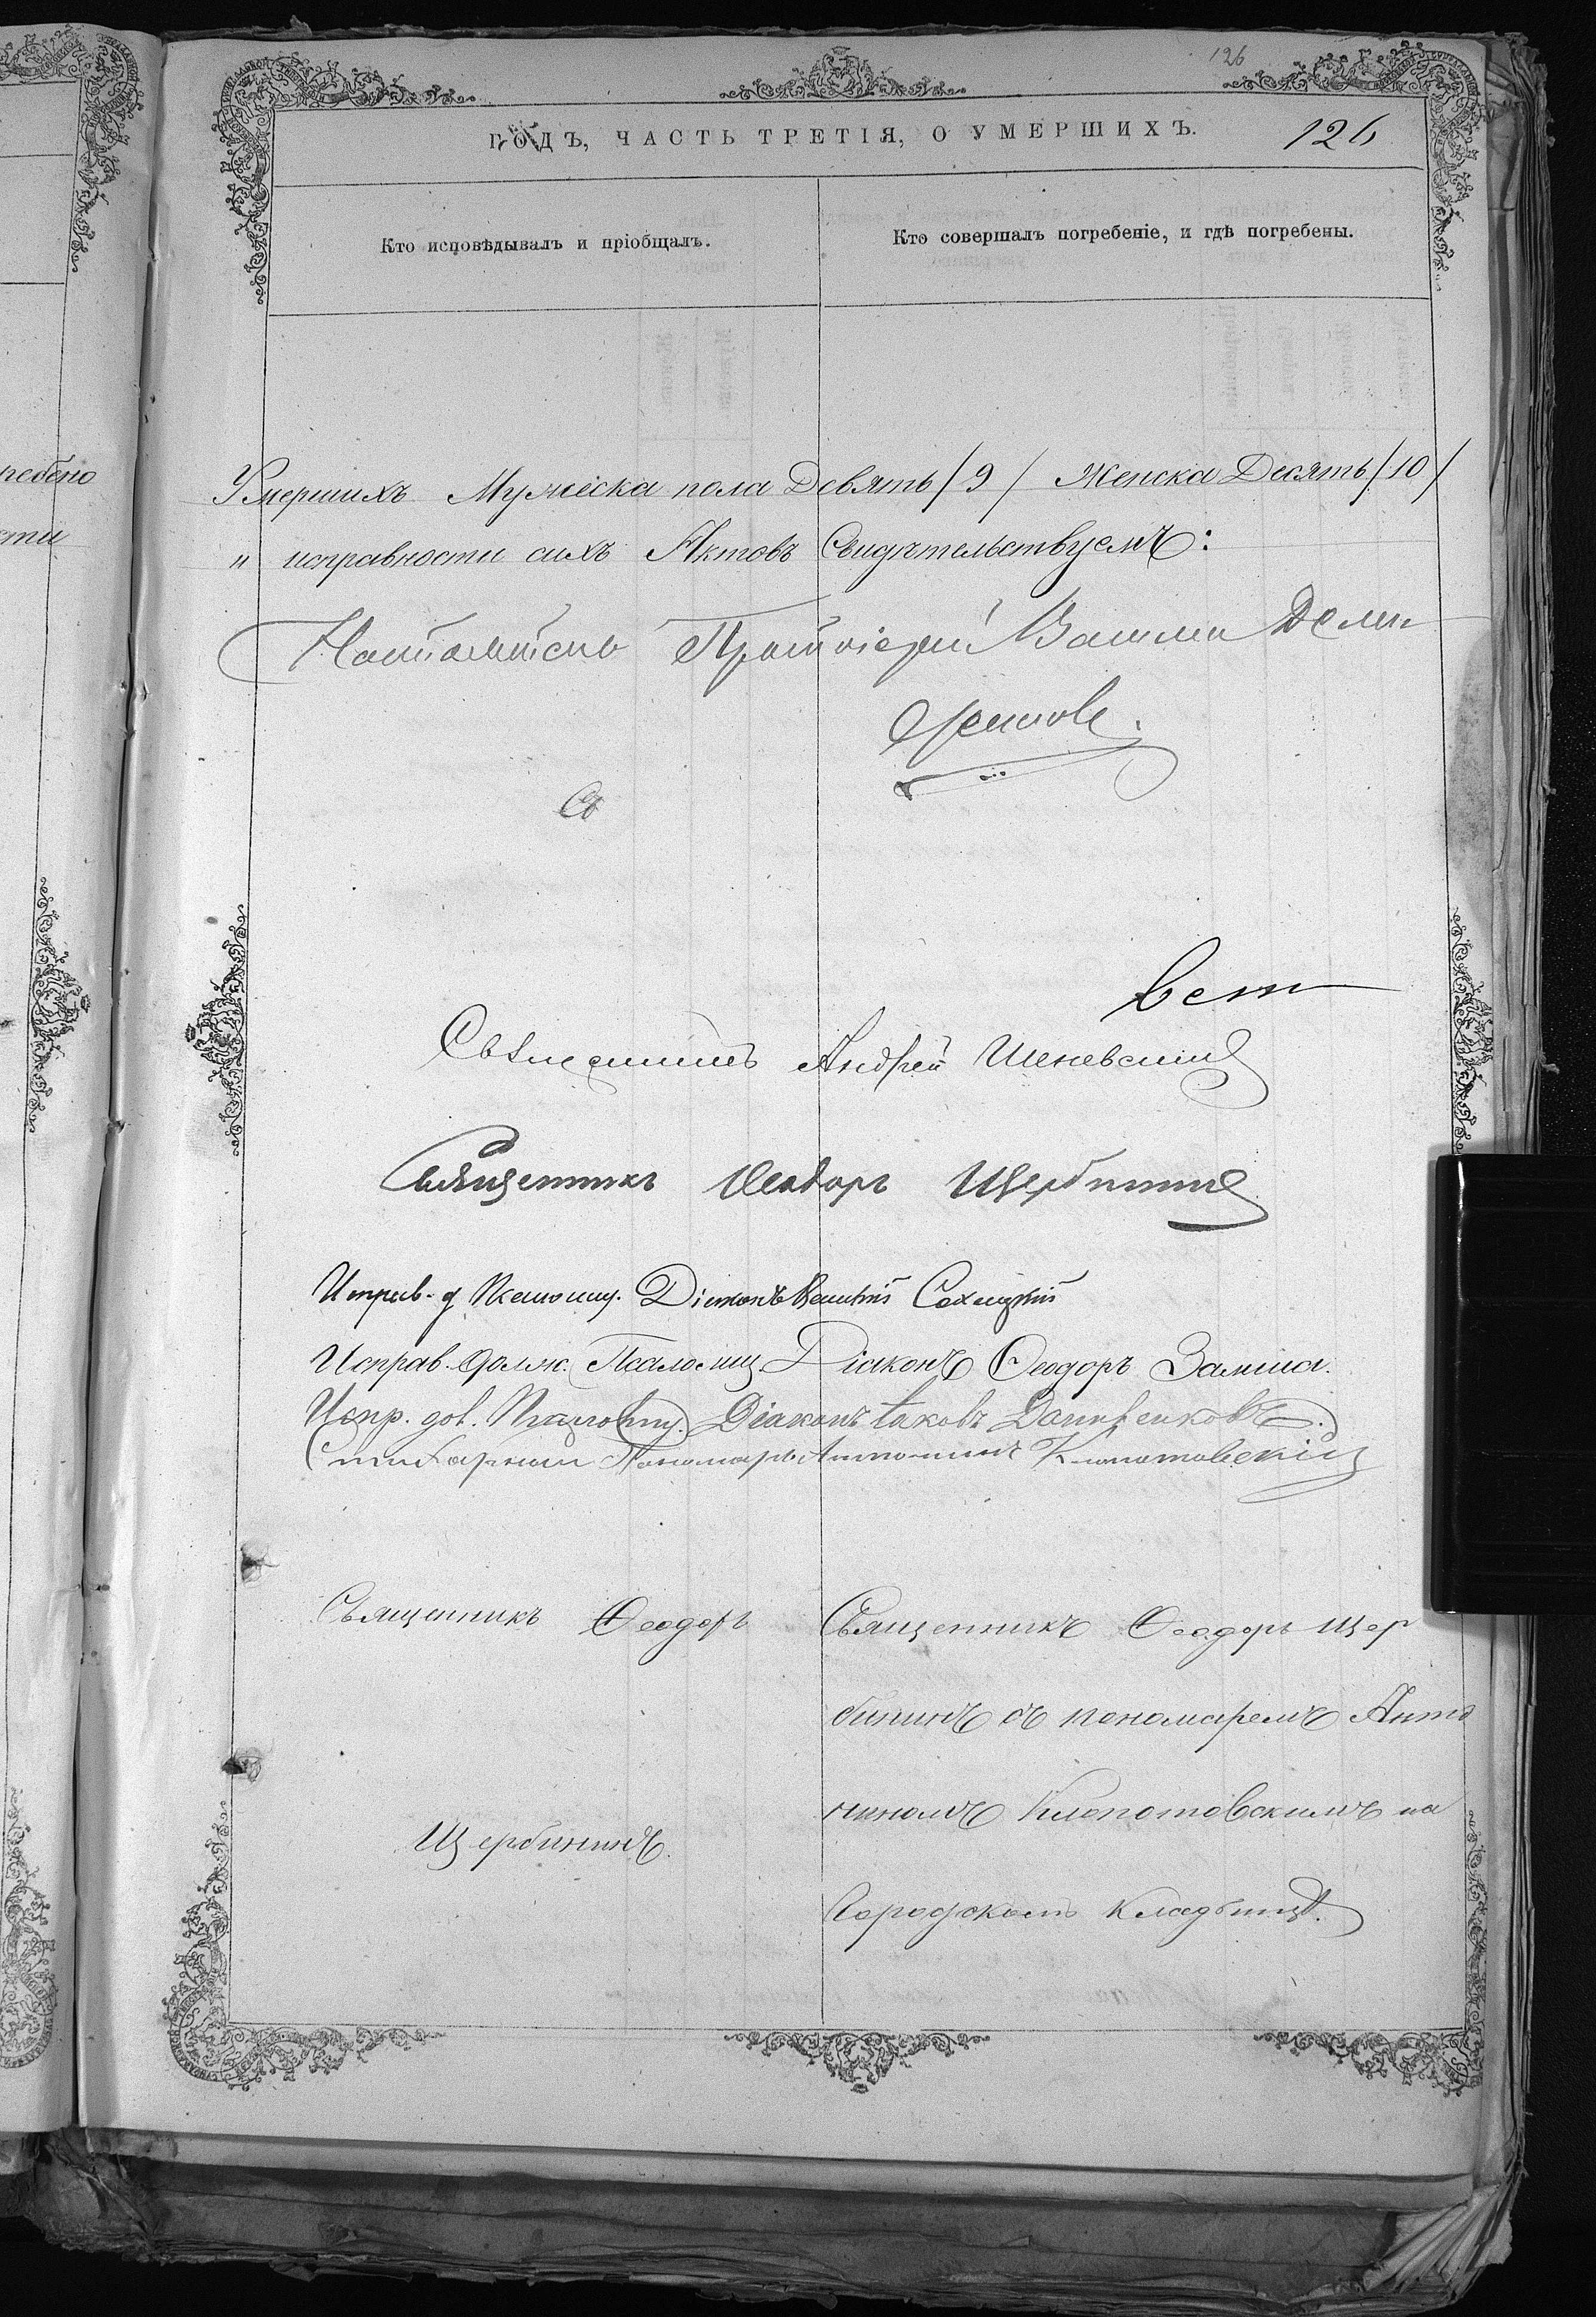 126
ГОДЪ, ЧАСТЬ ТРЕТІЯ, О УМЕРШИХЪ.
126
Кто исповѣдывалъ и пріобщалъ.
Кто совершалъ погребеніе, и гдѣ погребены.
Умершихъ Мужеска пола Девять /9/ Женска Десять /10/
" исправности сихъ Актовъ Свидѣтельствуемъ:
Настоятель Протоіерей
Священникъ Андрей
Священникъ Ѳеодоръ Щербининъ
Діаконъ
Исправ. долж. Псаломщ. Діаконъ Ѳеодоръ
Испр. дол. Псаломщ. Діаконъ Іаковъ
Стихарный Пономарь Антонинъ Клопотовскій
Священникъ Ѳеодоръ
Щербининъ.
Священникъ Ѳеодоръ Щер
бининъ съ пономаремъ Анто
ниномъ Клопотовскимъ на
Городскомъ кладбищѣ.